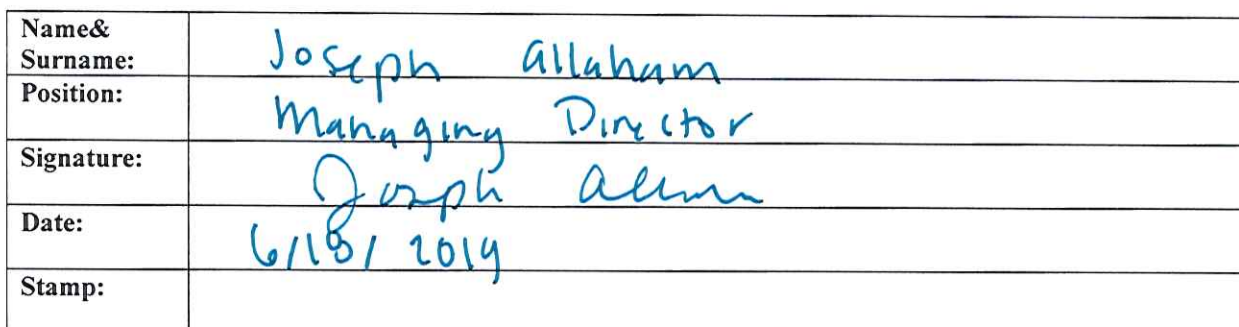 Name&
Surname: Joseph Allaham
Position: Managing Director
Signature: Joseph
Date: 6/18/2019
Stamp: